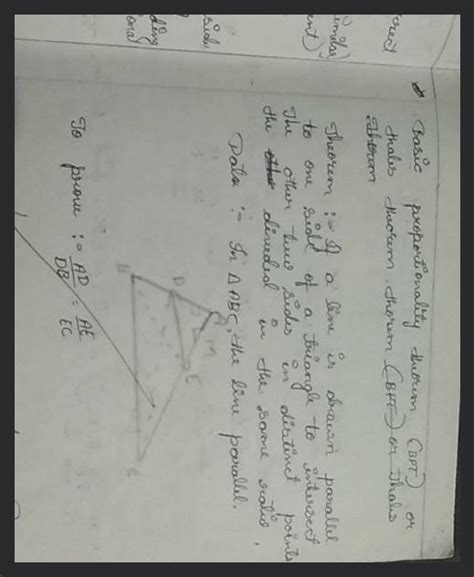 rrect
(similar
ent)
sidu
ding
onal
* Basic proportionality theorem (BPT) or
thales theorem. thorem (BPT) or Thales
Thorem
Theorem :- If a line is drawn parallel
to one side of a triangle to intersect
The other two sides in distinct points
the divided in the same ratio,
Data :- In △ABC, the line parallel.
A
M
D
E
B
C
To prove :- AD/DB = AE/EC